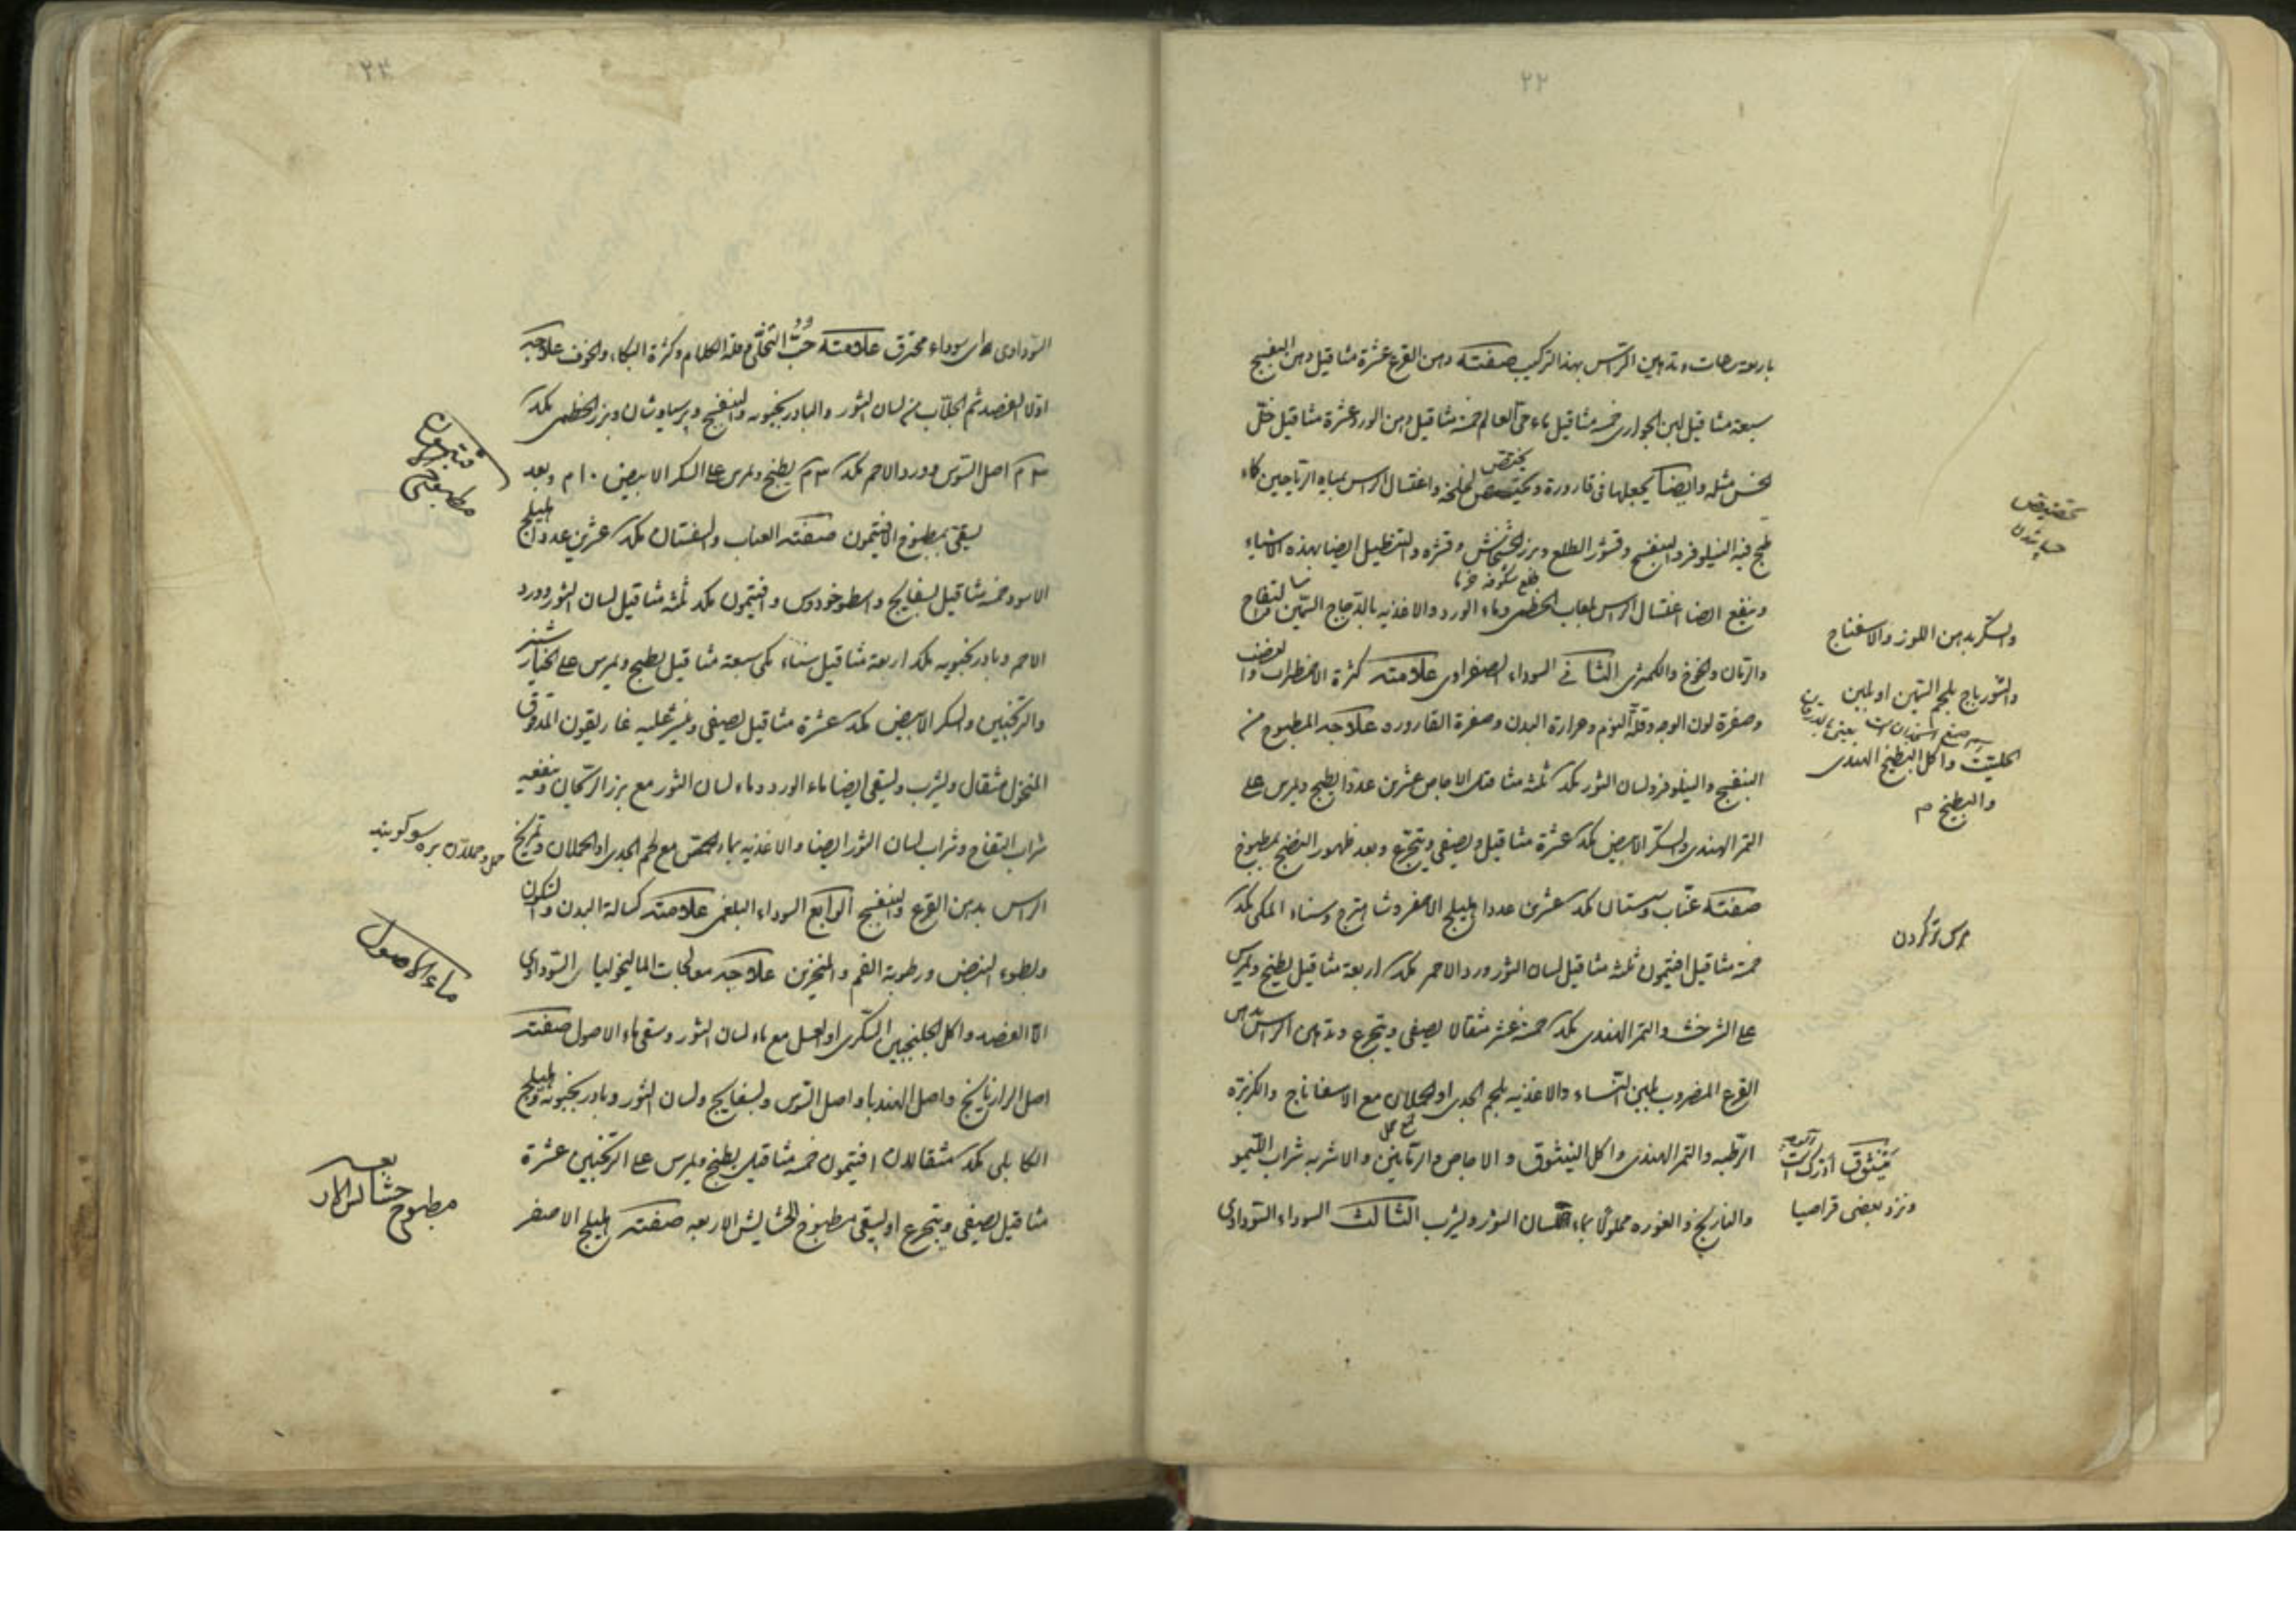 ٢٢
باربعة ساعات وتدهين الراس بهذا التركيب صفته دهن القرع عشرة مثاقيل دهن البنفسج
سبعة مثاقيل لبن الجوارى خمسة مثاقيل ماء حى العالم خمسة مثاقيل دهن الورد عشرة مثاقيل خل
الخس مثله وايضا يجعلها فى قارورة و واغتسال الراس بمياه الرياحين كماء
يختض
طبخ فيه النيلوفر والبنفسج وقشور الطلع وبزر الخشخاش وقشره والتنطيل ايضا بهذه الاشياء
طلع شكوفه خرما
وينفع ايضا اغتسال الراس بلعاب الخطمى وماء الورد والاغذية بالدجاج السمين والتفاح
والرمان والخوخ والكمثرى الثانى السوداء الصفراوى علامته كثرة الاضطراب والغضب
وصفرة لون الوجه وقلة النوم وحرارة البدن وصفرة القارورة علاجه المطبوخ من
البنفسج والنيلوفر ولسان الثور بكد ثلثة مثاقيل الاجاص عشرين عددا يطبخ ويمرس على
التمر الهندى والسكر الابيض بكد عشرة مثاقيل ويصفى ويتجرع وبعد ظهور النضج بمطبوخ
صفته عناب وسبستان بكد عشرين عددا اهليلج الاصفر وشاهترج وسناء المكى بكد
خمسة مثاقيل افتيمون ثلثة مثاقيل لسان الثور ورد الاحمر بكد اربعة مثاقيل يطبخ ويمرس
على الشرخشت والتمر الهندى بكد خمسة عشر مثقالا يصفى ويتجرع وتدهين الراس بدهن
القرع المضروب بلبن النساء والاغذية بلحم الجدى او الحملان مع الاسفاناج والكزبرة
الرطبة والتمر الهندى واكل النيشوق والاجاص والرمانين والاشربه شراب الليمو
والنارنج والغوره محلولا بماء لسان الثور ويشرب الثالث السوداء السوداوى
تخضيض
جنباندن
والسكر بدهن اللوز والاسفناج
والشورباج بلحم السمين او بلبن
الحليب واكل البطيخ الهندى
والبطيخ م
مرس تر كردن
نيشوق
ونزد بعضى قراصيا
٢٣
السوداوى اى سوداء محترق علامته حب التخلى وقلة الكلام وكثرة البكاء والخوف علاجه
اولا الفصد ثم الجلاب من لسان الثور والبادرنجبويه والبنفسج وپرسياوشان وبزر الخطمى بكد
٣ م اصل السوس وورد الاحمر بكد ٣ م يطبخ ويمرس على السكر الابيض ١٠ م وبعد
يسقى بمطبوخ الافتيمون صفته العناب والسفستان بكد عشرين عددا اهليلج
الاسود خمسة مثاقيل بسفايج واسطوخودوس وافتيمون بكد ثلثه مثاقيل لسان الثور وورد
الاحمر وبادرنجبويه بكد اربعة مثاقيل سناء مكى سبعة مثاقيل يطبخ ويمرس على الخيارشنبر
والترنجبين والسكر الابيض بكد عشرة مثاقيل يصفى وينثر عليه غاريقون المدقوق
المنخول مثقال ويشرب ويسقى ايضا ماء الورد وماء لسان الثور مع بزر الريحان وينفعه
شراب التفاح وشراب لسان الثور ايضا والاغذية بماء الحمص مع لحم الجدى او الحملان وتمريخ
الراس بدهن القرع والبنفسج الرابع السوداء البلغمى علامته كسالة البدن والسكون
وبطوء النبض ورطوبة الفم والمنخرين علاجه معالجات الماليخوليا السوداوى
الا الفصد واكل الجلنجبين السكرى او العسل مع ماء لسان الثور وسقى ماء الاصول صفته
اصل الرازيانج واصل الهندبا واصل السوس وبسفايج ولسان الثور وبادرنجبويه واهليلج
الكابلى بكد مثقالان افتيمون خمسة مثاقيل يطبخ ويمرس على الترنجبين عشرة
مثاقيل يصفى ويتجرع او يسقى مطبوخ الحشايش الاربعه صفته اهليلج الاصفر
مطبوخ
افتيمون
حمل وحملان بره سو كويند
ماء الاصول
مطبوخ حشايش الاربعه